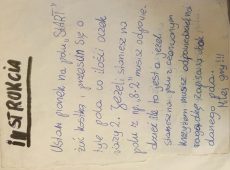 INSTRUKCJA
Ustaw pionek na polu „START"
rzuć kostką przesuń się o
tyle pola co ilości oczek
razy 2. Jeżeli staniesz na
polu z np. 8-2 musisz odpowie-
dzieć ile to jest a jeżeli
staniesz na polu z czerwonym
krzyżem musisz odpowiedzieć na
zagadkę zapisaną
danego pola.
Miłej gry!!!